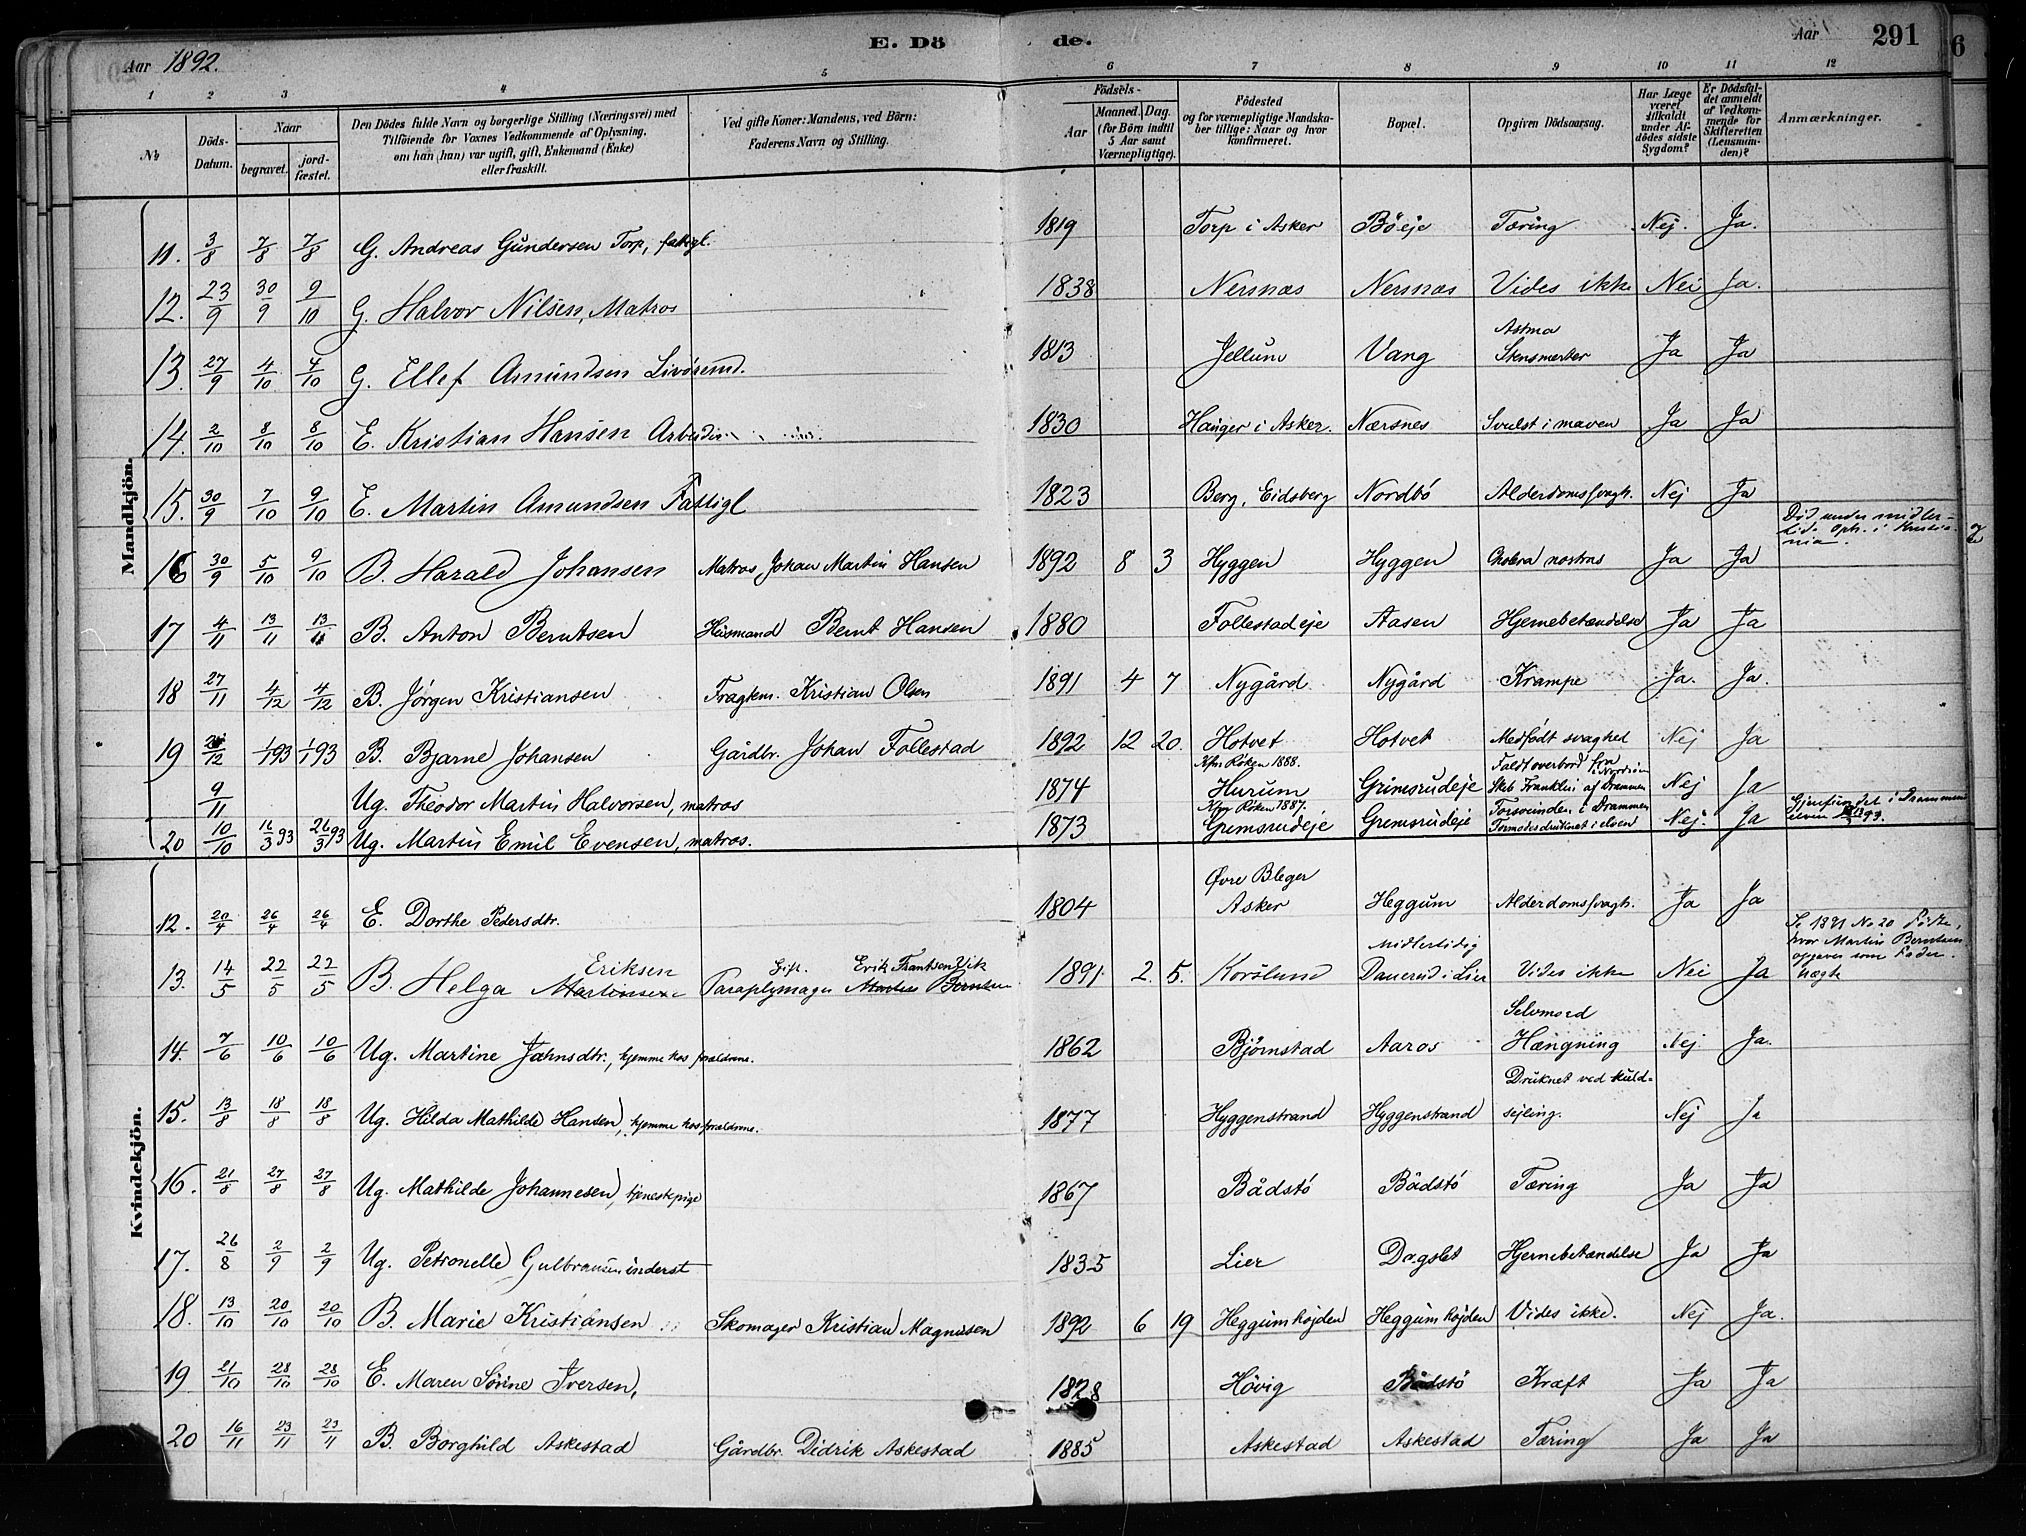 Aar 1892. E. Döde. Aar 291
1 2 3 4 5 6 7 8 9 10 11 12
No Döds-Datum. Naar begravet. jordfæstet. Den Dödes fulde Navn og borgerlige Stilling (Næringsvei) med Tilföiende for Voxnes Vedkommende af Oplysning, om han (hun) var ugift, gift, Enkemand (Enke) eller fraskilt. Ved gifte Koner: Mandens, ved Börn: Faderens Navn og Stilling. Födsels- Aar Maaned. Dag. (for Börn indtil 5 Aar samt Værnepligtige). Födested og for værnepligtige Mandskaber tillige: Naar og hvor konfirmeret. Bopæl. Opgiven Dödsaarsag. Har Læge været tilkaldt under Afdödes sidste Sygdom? Er Dödsfaldet anmeldt af Vedkommende for Skifteretten (Lensmanden)? Anmærkninger.
Mandkjön.
11. 3/8 7/8 7/8 G. Andreas Gundersen Torp, fattigl. 1819 Torp i Asker Böeje Tæring Nej. Ja.
12. 23/9 30/9 9/10 G. Halvor Nilsen, Matros 1838 Nersnæs Nersnæs Vides ikke Nei Ja.
13. 27/9 4/10 4/10 G. Ellef Amundsen 1813 Jellum Vang Astma Stensmerter Ja Ja
14. 2/10 8/10 8/10 E. Kristian Hansen 1830 Hanger i Asker. Nærsnes Svulst i maven Ja Ja
15. 30/9 7/10 9/10 E. Martin Amundsen Fattigl 1823 Berg, Eidsberg Nordbö Alderdomssvagh. Nej Ja
16 30/9 5/10 9/10 B. Harald Johansen Matros Johan Martin Hansen 1892 8 3 Hyggen Hyggen Cholera nostras Ja Ja Död under midlertid. Oph. i Kristiania.
17 4/11 13/11 13/11 B. Anton Berntsen Husmand Bernt Hansen 1880 Follestadeje Aasen Hjernebetændelse Ja Ja
18 27/11 4/12 4/12 B. Jörgen Kristiansen Fragtem. Kristian Olsen 1891 4 7 Nygård Nygård Krampe Ja. Ja.
19 /12 1/1 93 1/1 93 B. Bjarne Johansen Gårdbr. Johan Follestad 1892 12 20. Hotvet Hotvet Medfödt svaghed Nej Ja
9/11 Ug. Theodor Martin Halvorsen, matros 1874 Kfm Röken 1888. Hurum Grimsrudeje Faldt overbord fra Skib Franklin af Drammen i Nordsöen Nej Ja
20 10/10 16/3 93 26/3 93 Ug. Martin Emil Evensen, matros. 1873 Kfm Röken 1887. Gremsrudeje Gremsrudeje Forsvunden i Drammen Formodes druknet i elven Nej. Ja Gjenfundet i Drammenselven
Kvindekjön.
12. 20/4 26/4 26/4 E. Dorthe Pedersdtr. 1804 Övre Bleger Asker Heggum Alderdomssvagh. Ja Ja
13. 14/5 22/5 22/5 B. Helga Martinsen Eriksen Gift. Paraplymager Martin Berntsen Erik Frantsen Vik 1891. 2. 5. Korslund Midlertidig Dauerud i Lier Vides ikke Nei Ja Se 1891 No 20 Födte, hvor Martin Berntsen opgaves som Fader. Uægte
14. 7/6 10/6 10/6 Ug. Martine Jahnsdtr., hjemme hos forældrene. 1862 Björnstad Aaros Selvmord Hængning Nej. Ja.
15. 13/8 18/8 18/8 Ug. Hilda Mathilde Hansen, hjemme hos forældrene. 1877 Hyggenstrand Hyggenstrand Druknet ved kuldsejling. Nej Ja
16. 21/8 27/8 27/8 Ug. Mathilde Johannesen, tjenestepige 1867 Bådstö Bådstö Tæring Ja Ja
17. 26/8 2/9 2/9 Ug. Petronelle Gulbransen inderst 1835 Lier Dagslet Hjernebetændelse Ja Ja
18. 13/10 20/10 20/10 B. Marie Kristiansen Skomager Kristian Magnusen 1892 6 19 Heggumhöjden Heggumhöjden Vides ikke. Nej Ja.
19 21/10 28/10 28/10 E. Maren Sörine Iversen, 1828 Hövig Bådstö Kræft Ja Ja
20 16/11 23/11 23/11 B. Borghild Askestad Gårdbr. Didrik Askestad 1885 Askestad Askestad Tæring Ja Ja